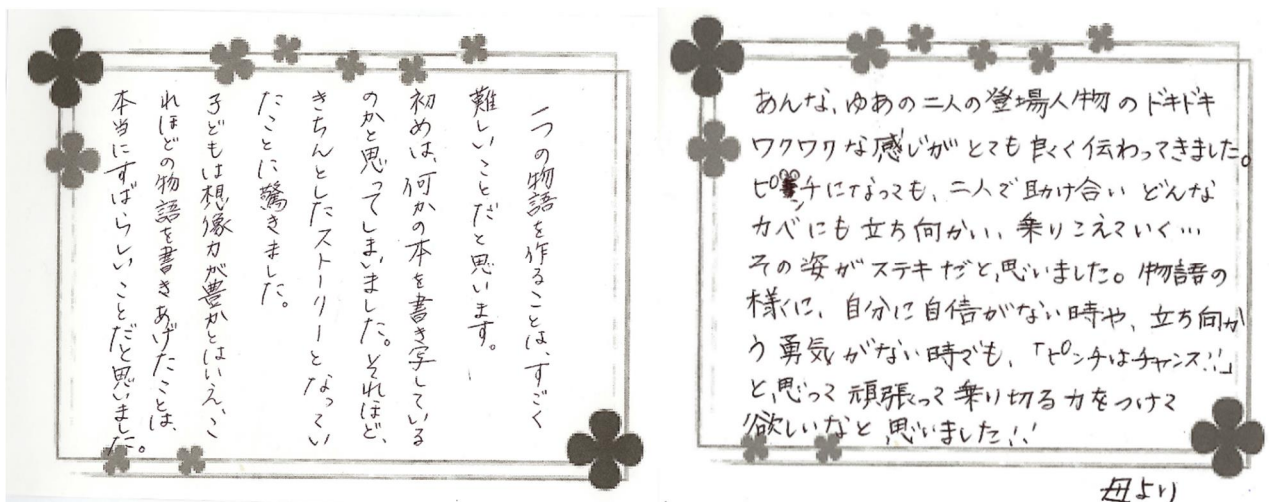 一つの物語を作ることは、すごく
難しいことだと思います。
初めは、何かの本を書き写している
のかと思ってしまいました。それほど、
きちんとしたストーリーとなってい
たことに驚きました。
子どもは想像力が豊かとはいえ、こ
れほどの物語を書きあげたことは、
本当にすばらしいことだと思いました。
あんな、ゆあの二人の登場人物のドキドキ
ワクワクな感じがとても良く伝わってきました。
ピンチになっても、二人で助け合いどんな
カベにも立ち向かい、乗りこえていく…
その姿がステキだと思いました。物語の
様に、自分に自信がない時や、立ち向か
う勇気がない時でも、「ピンチはチャンス!!」
と思って頑張って乗り切る力をつけて
欲しいなと思いました!!
母より